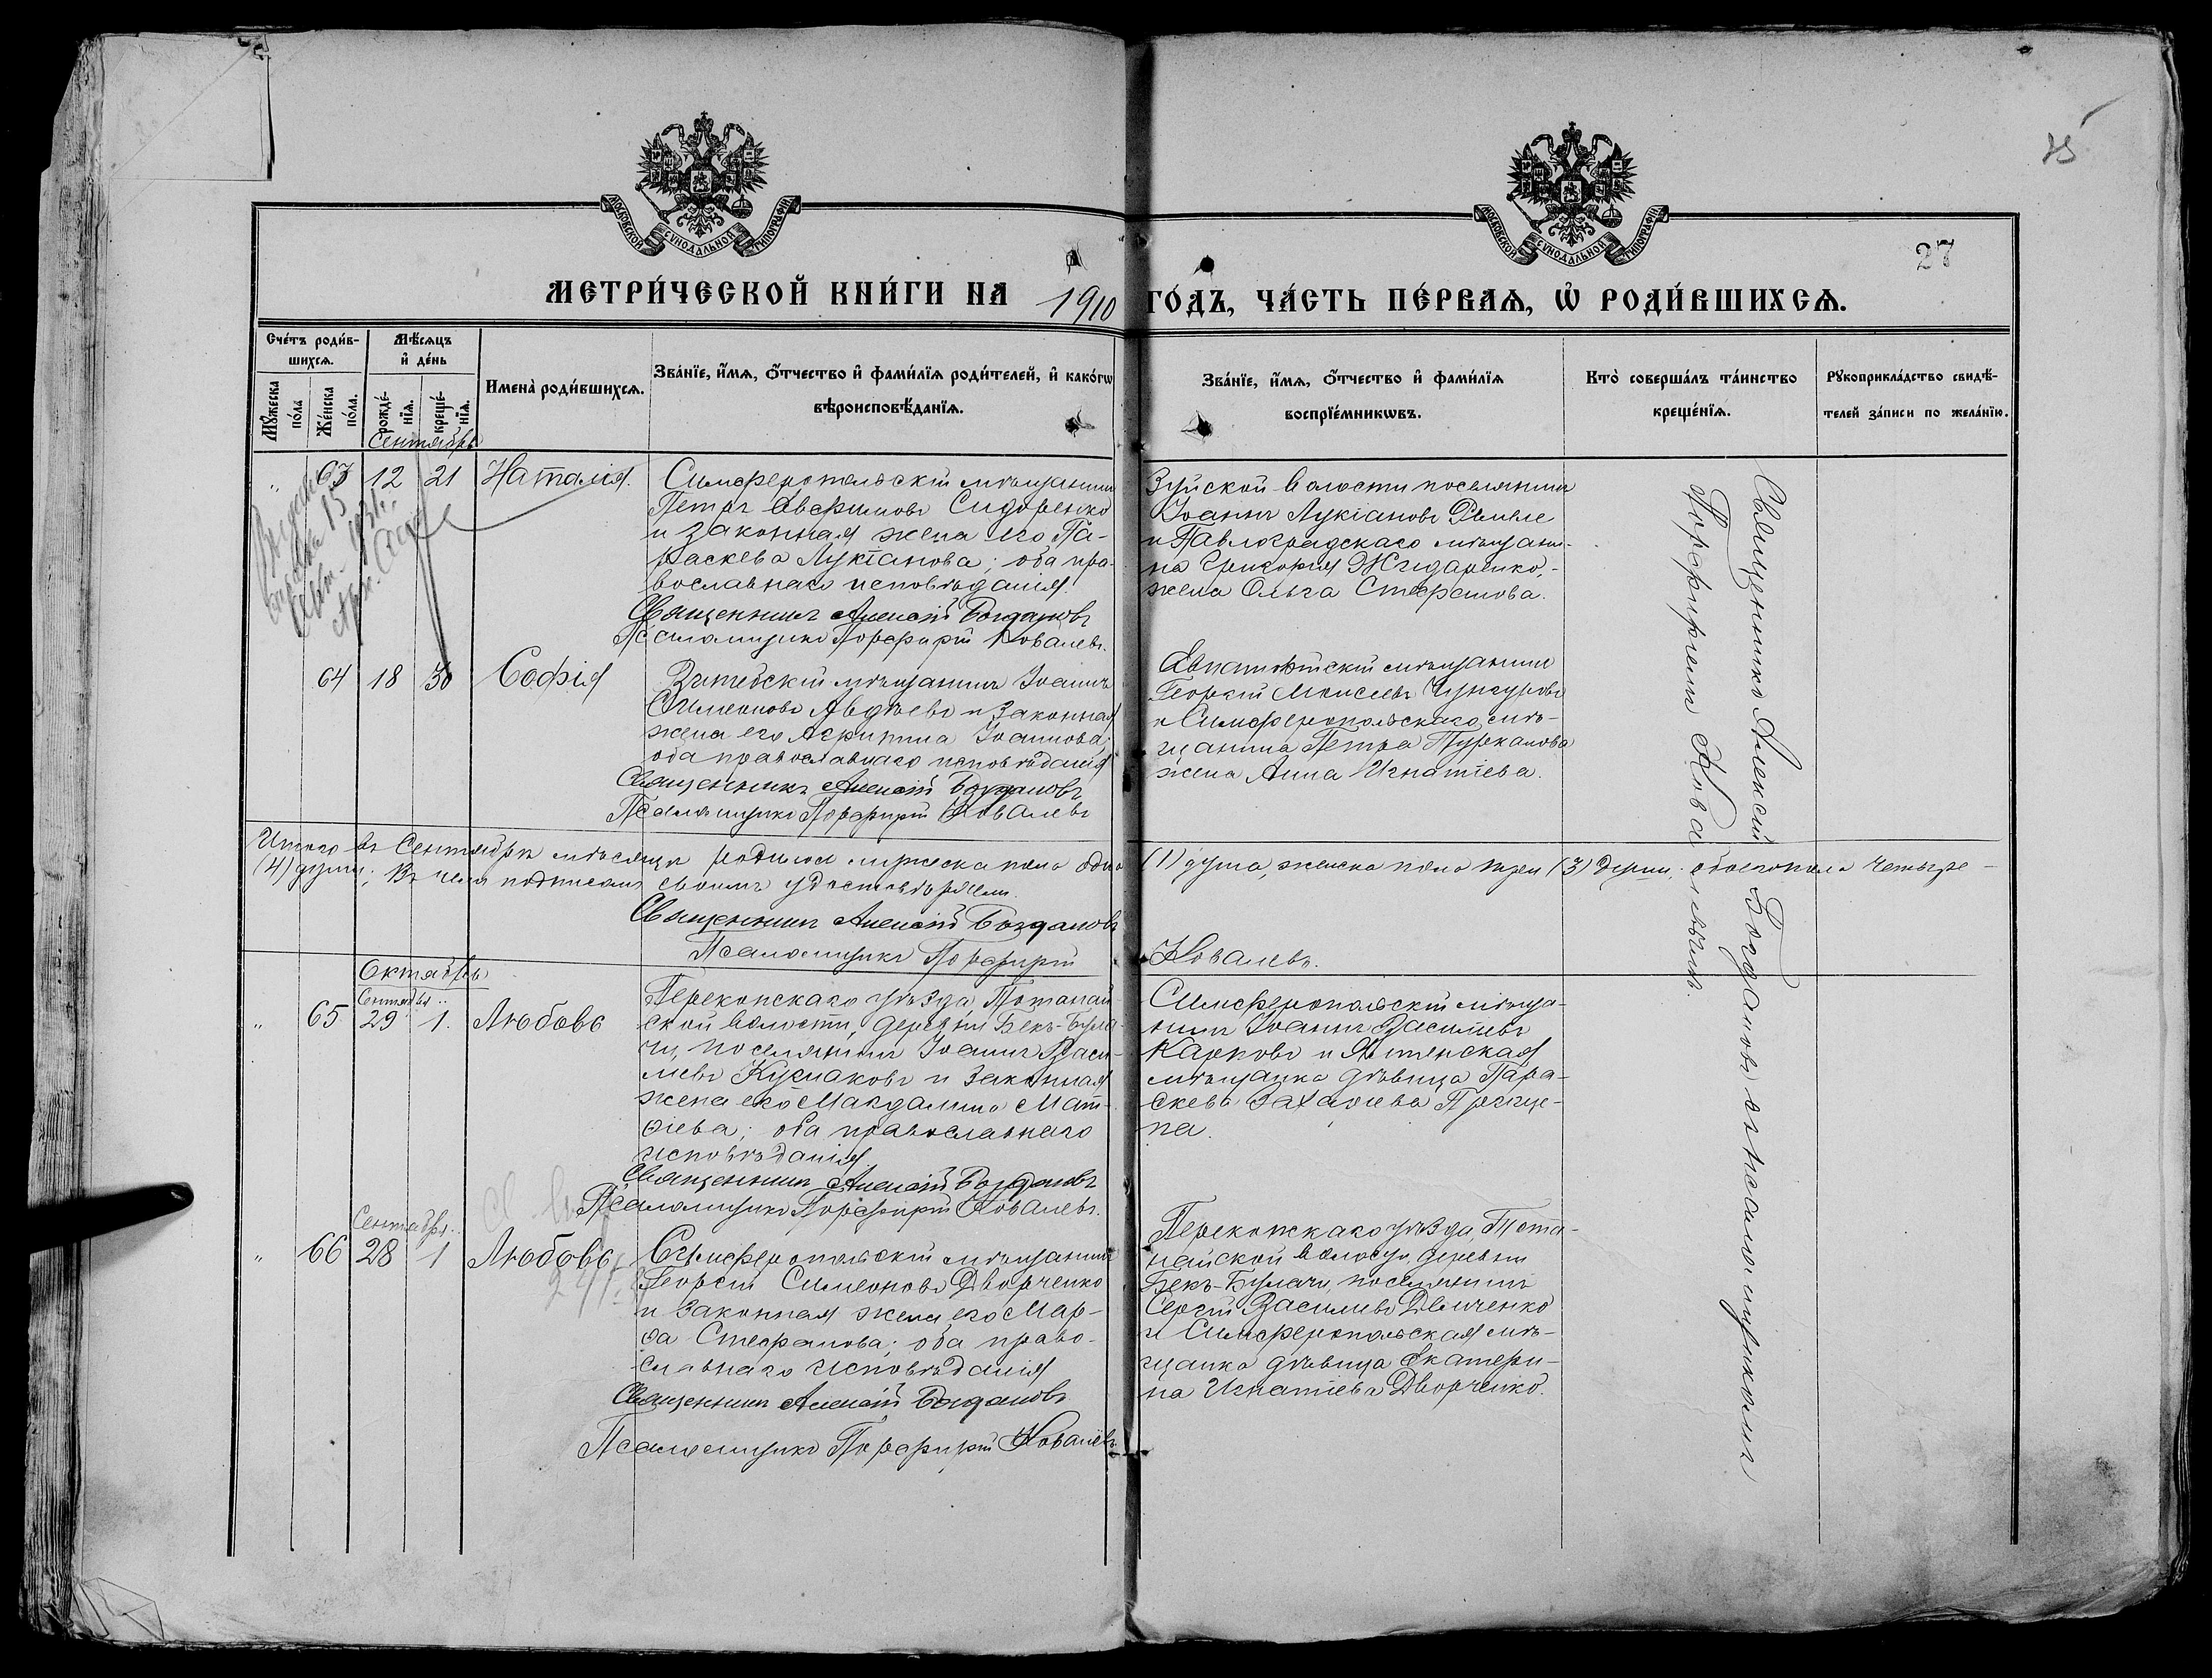 МОСКОВСКОЙ СѴНОДАЛЬНОЙ ТИПОГРАФІИ
МОСКОВСКОЙ СѴНОДАЛЬНОЙ ТИПОГРАФІИ
27
МЕТРИ́ЧЕСКОЙ КНИ́ГИ НА 1910 ГО́ДЪ, ЧА́СТЬ ПЕ́РВАѦ, Ѡ РОДИ́ВШИХСѦ.
Сче́тъ роди́в-
шихсѧ.
Мꙋ́жеска
по́ла
Же́нска
по́ла.
Мѣ́сѧцъ
и҆ де́нь
рожде́-
нїѧ.
креще́-
нїѧ.
Имена̀ роди́вшихсѧ.
Зва́нїе, и҆́мѧ, ѻ҆́тчество и҆ фами́лїѧ роди́телей, и҆ како́гѡ
вѣроисповѣ́данїѧ.
Зва́нїе, и҆́мѧ, ѻ҆́тчество и҆ фами́лїѧ
воспрїе́мникѡвъ.
Кто̀ соверша́лъ та́инство
креще́нїѧ.
Рꙋкоприкла́дство свидѣ́-
телей за́писи по жела́нїю.
Сентябрь
" 63 12 21 Наталія.
Симферопольскій мѣщанинъ
Петръ Авксимовъ Сидоренко
и законная жена его Па-
раскева Лукіанова; оба пра-
вославнаго исповѣданія.
Священникъ Алексій Богдановъ
Псаломщикъ Порфирій Ковалевъ.
Зуйской волости поселянинъ
Іоаннъ Лукіановъ
и Павлоградскаго мѣщани-
на Григорія Жидаренко,-
жена Ольга Стефанова.
64 18 30 Софія
Витебскій мѣщанинъ Іоаннъ
Симеоновъ Авдѣевъ и законная
жена его Агрипина Іоаннова;
оба православнаго исповѣданія
Священникъ Алексій Богдановъ
Псаломщикъ Порфирій Ковалевъ
Евпаторійскій мѣщанинъ
Георгій Моисеевъ
и Симферопольскаго мѣ-
щанина Петра
жена Анна Игнатіева.
Итого въ Сентябрѣ мѣсяцѣ родилось мужеска пола одна (1) душа, женска пола три (3) души, обоего пола четыре -
(4) души; въ чемъ подписомъ своимъ удостовѣряемъ
Священникъ Алексій Богдановъ
Псаломщикъ Порфирій Ковалевъ.
Октябрь
Сентября..
" 65 29 1. Любовь
Перекопскаго уѣзда, Потанай
ской волости, деревни Бекъ-Була-
чи, поселянинъ Іоаннъ Васи-
льевъ Кусмаковъ и законная
жена его Магдалина Мат-
ѳіева; оба православнаго
исповѣданія
Священникъ Алексій Богдановъ
Псаломщикъ Порфирій Ковалевъ.
Симферопольскій мѣща-
нинъ Іоаннъ Васильевъ
Карповъ и Ялтинская
мѣщанка дѣвица Пара-
скева Захаріева Прище-
па.
Сентября..
" 66 28 1 Любовь
Симферопольскій мѣщанинъ
Георгій Симеоновъ Дворченко
и законная жена его Мар-
ѳа Стефанова; оба право-
славнаго исповѣданія
Священникъ Алексій Богдановъ
Псаломщикъ Порфирій Ковалевъ
Перекопскаго уѣзда, Пота-
найской волости, деревни
Бекъ-Булачи, поселянинъ
Сергій Васильевъ Демченко
и Симферопольская мѣ-
щанка дѣвица Екатери-
на Игнатіева Дворченко.
Священникъ Алексій Богдановъ съ псаломщикомъ
Порфиріемъ Ковалевымъ.